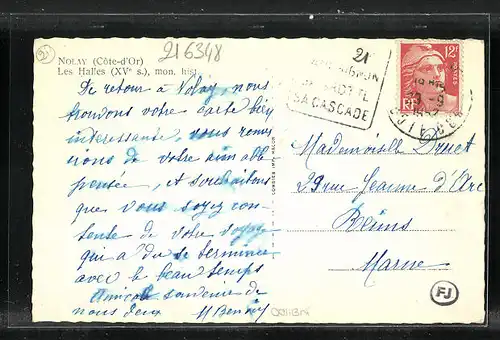 21
216348
NOLAY (Côte-d'Or)
Les Halles (XVe s.), mon. hist.
De retour à Nolay, nous
trouvons votre carte bien
intéressante, vous remer
cions de votre aimable
pensée, et souhaitons
que vous soyez con-
tente de votre voyage
qui a dû se terminer
avec le beau temps
Amical souvenir de
nous deux
21
SA CASCADE
12F
POSTES
RF
Mademoiselle Druet
29 rue Jeanne d'Arc
Reims
Marne
FJ